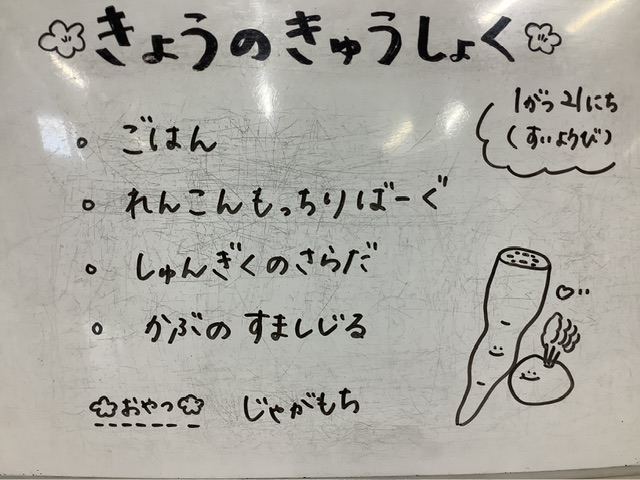 きょうのきゅうしょく
1がつ21にち
(すいようび)
ごはん
れんこんもっちりばーぐ
しゅんぎくのさらだ
かぶのすましじる
おやつ じゃがもち